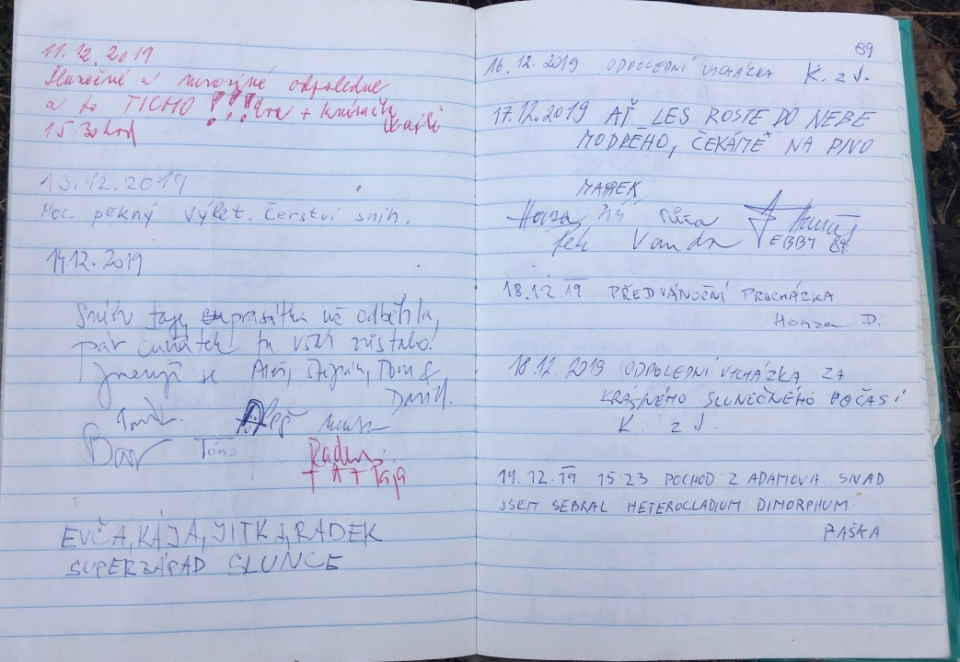 11.12.2019
Slunečné a mrazivé odpoledne
a to TICHO !!! Eva +
15.30 hod
13.12.2019
Moc pěkný výlet. čerství sníh.
14.12.2019
Sníh taje, prasátka už odběhla,
pár čuňátek tu však zůstalo!
Jmenují se Aleš, Štěpán, Tom &
David.
Bar Tóno
Radek
+ A + Pája
EVČA, KÁJA, JITKA, RADEK
SUPERZÁPAD SLUNCE
89
16.12.2019 ODPOLEDNÍ VYCHÁZKA K. z J.
17.12.2019 AŤ LES ROSTE DO NEBE
MODRÉHO, ČEKÁME NA PIVO
MAREK
Honza
Petr Vanda EBBY
18.12.19 PŘEDVÁNOČNÍ PROCHÁZKA
Honza D.
18.12.2019 ODPOLEDNÍ VYCHÁZKA ZA
KRÁSNÉHO SLUNEČNÉHO POČASÍ
K. z J.
19.12.19 15:23 POCHOD Z ADAMOVA. SNAD
JSEM SEBRAL HETEROCLADIUM DIMORPHUM.
PAŠKA